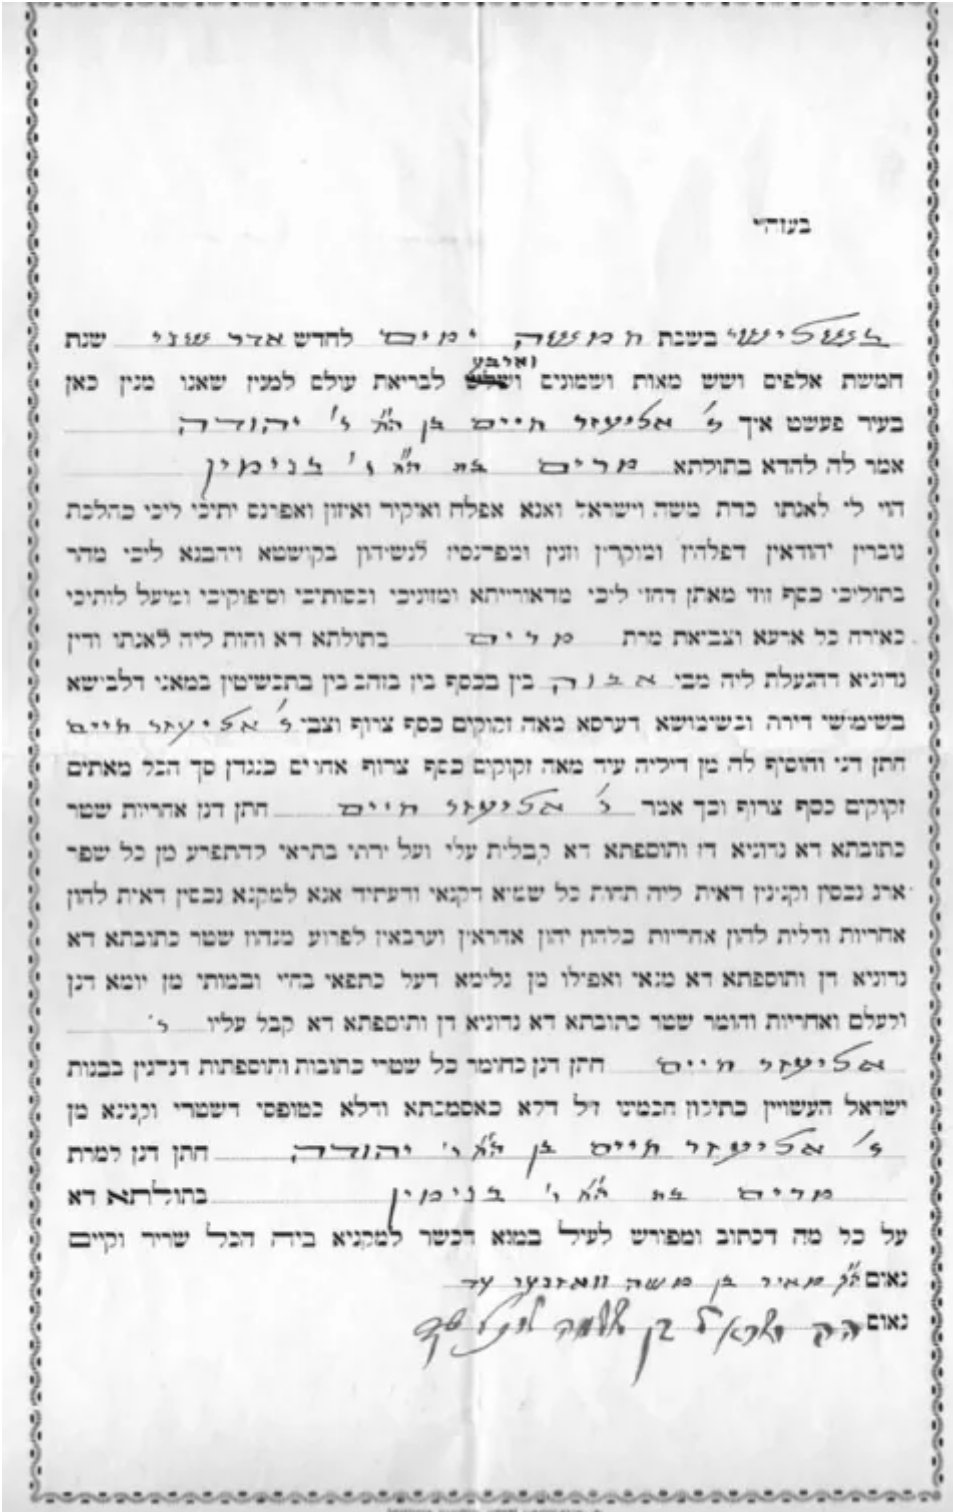 בעזהי
בשלישי בשבת חמשה ימים לחדש אדר שני שנת
וארבע
חמשת אלפים ושש מאות ושמונים ושלש לבריאת עולם למנין שאנו מנין כאן
בעיר פעשט איך ר' אליעזר חיים בן ר' יהודה
אמר לה להדא בתולתא מרים בת ר' בנימין
הוי לי לאנתו כדת משה וישראל ואנא אפלח ואוקיר ואיזון ואפרנס יתיכי ליכי כהלכת
גוברין יהודאין דפלחין ומוקרין וזנין ומפרנסין לנשיהון בקושטא ויהבנא ליכי מהר
בתוליכי כסף זוזי מאתן דחזי ליכי מדאורייתא ומזוניכי וכסותיכי וסיפוקיכי ומיעל לותיכי
כאורח כל ארעא וצביאת מרת מרים בתולתא דא והות ליה לאנתו ודין
נדוניא דהנעלת ליה מבי אבוה בין בכסף בין בזהב בין בתכשיטין במאני דלבושא
בשימושי דירה ובשימושא דערסא מאה זקוקים כסף צרוף וצבי ר' אליעזר חיים
חתן דנן והוסיף לה מן דיליה עוד מאה זקוקים כסף צרוף אחרים כנגדן סך הכל מאתים
זקוקים כסף צרוף וכך אמר ר' אליעזר חיים חתן דנן אחריות שטר
כתובתא דא נדוניא דן ותוספתא דא קבלית עלי ועל ירתי בתראי להתפרע מן כל שפר
ארג נכסין וקנינין דאית ליה תחות כל שמיא דקנאי ודעתיד אנא למקנא נכסין דאית להון
אחריות ודלית להון אחריות כלהון יהון אחראין וערבאין לפרוע מנהון שטר כתובתא דא
נדוניא דן ותוספתא דא מנאי ואפילו מן גלימא דעל כתפאי בחיי ובמותי מן יומא דנן
ולעלם ואחריות וחומר שטר כתובתא דא נדוניא דן ותוספתא דא קבל עליו ר'
אליעזר חיים חתן דנן כחומר כל שטרי כתובות ותוספתות דנהגין בבנות
ישראל העשויין כתיקון חכמינו ז״ל דלא כאסמכתא ודלא כטופסי דשטרי וקנינא מן
ר' אליעזר חיים בן ר' יהודה חתן דנן למרת
מרים בת ר' בנימין בתולתא דא
על כל מה דכתוב ומפורש לעיל במנא דכשר למקניא ביה הכל שריר וקיים
נאום מאיר בן משה וואזנער עד
נאום ישראל בן שלמה עד